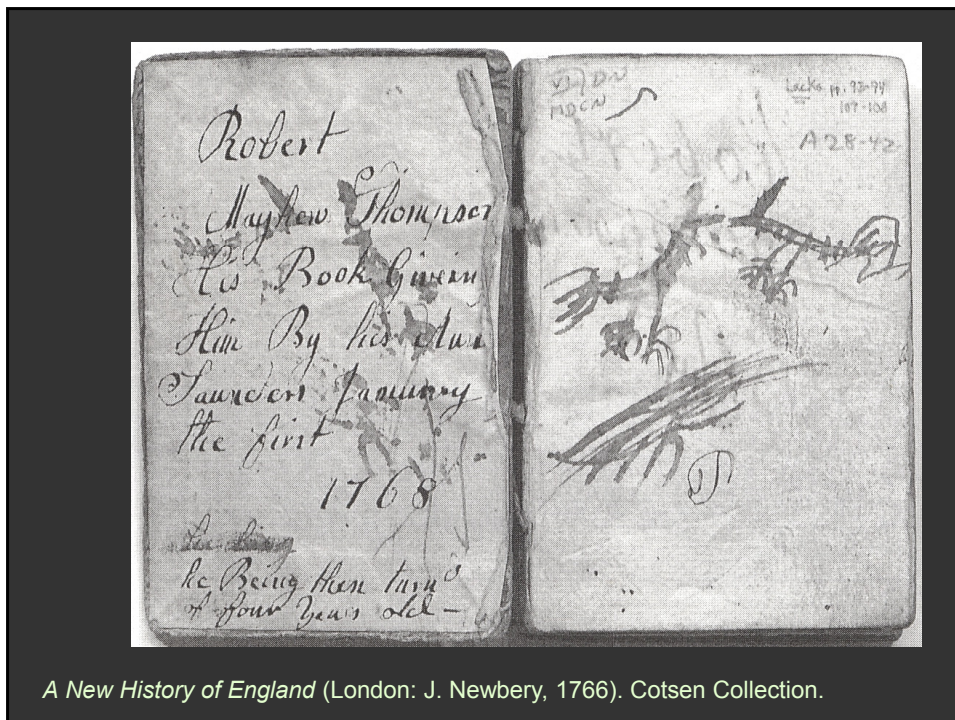 Robert
Mayhew Thompson
His Book Given
Him By his
Saunders January
the first
1768
he Being then turn'd
of four Years old -
MDCN
Lacks pp. 93-94
107-108
A 28-42
A New History of England (London: J. Newbery, 1766). Cotsen Collection.